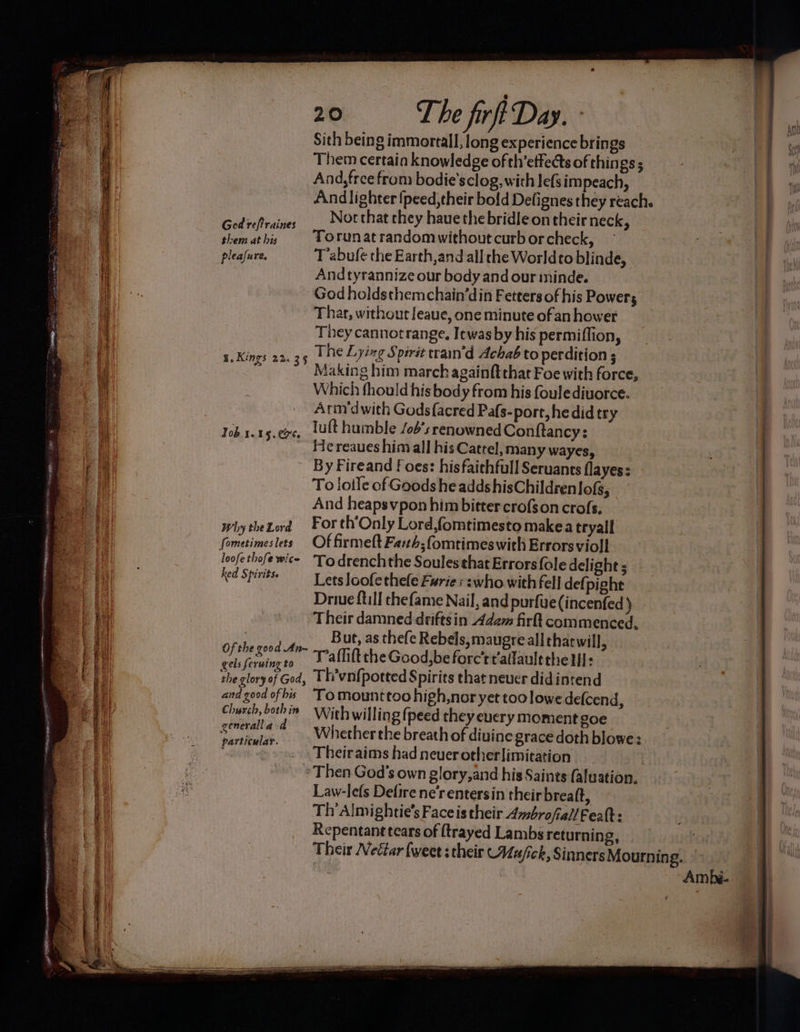 20 The firſt Day.
Sith being immortall, long experience brings
Them certain knowledge of th'effects of things;
And, free from bodie's clog, with leſs impeach,
And lighter ſpeed, their bold Deſignes they reach.
God reſtraines
them at his
pleaſure.
Not that they haue the bridle on their neck,
To run at random without curb or check,
T'abuſe the Earth, and all the World to blinde,
And tyrannize our body and our minde.
God holds them chain'd in Fetters of his Power;
That, without leaue, one minute of an hower
They cannot range. It was by his permiſſion,
1. Kings 22. 35
The Lying Spirit train'd Achab to perdition;
Making him march againſt that Foe with force,
Which ſhould his body from his ſoule diuorce.
Arm'd with Gods ſacred Paſs-port, he did try
Iob 1. 15. &c.
Iuſt humble Iob's renowned Conſtancy:
He reaues him all his Cattel, many wayes,
By Fire and Foes: his faithfull Seruants ſlayes:
To loſſe of Goods he adds his Childrens loſs,
And heaps vpon him bitter croſs on croſs.
Why the Lord
ſometimes lets
looſe thoſe wic-
ked Spirits.
For th'Only Lord, ſomtimes to make a tryall
Of firmeſt Faith; ſomtimes with Errors violl
To drench the Soules that Errors ſole delight;
Lets looſe theſe Furies: who with fell deſpight
Driue ſtill the ſame Nail, and purſue (incenſed)
Their damned drifts in Adam firſt commenced.
Of the good An-
gels ſeruing to
the glory of God,
and good of his
Church, both in
generall and
particular.
But, as theſe Rebels, maugre all that will,
T'aſſiſt the Good, be forc't t'aſſault the Ill:
Th'vnſpotted Spirits that neuer did intend
To mount too high, nor yet too lowe deſcend,
With willing ſpeed they euery moment goe
Whether the breath of diuine grace doth blowe:
Their aims had neuer other limitation
Then God's own glory, and his Saints ſaluation.
Law-leſs Deſire ne'r enters in their breaſt,
Th'Almightie's Face is their Ambroſiall Feaſt:
Repentant tears of ſtrayed Lambs returning,
Their Nectar ſweet: their Muſick, Sinners Mourning.
Ambi-